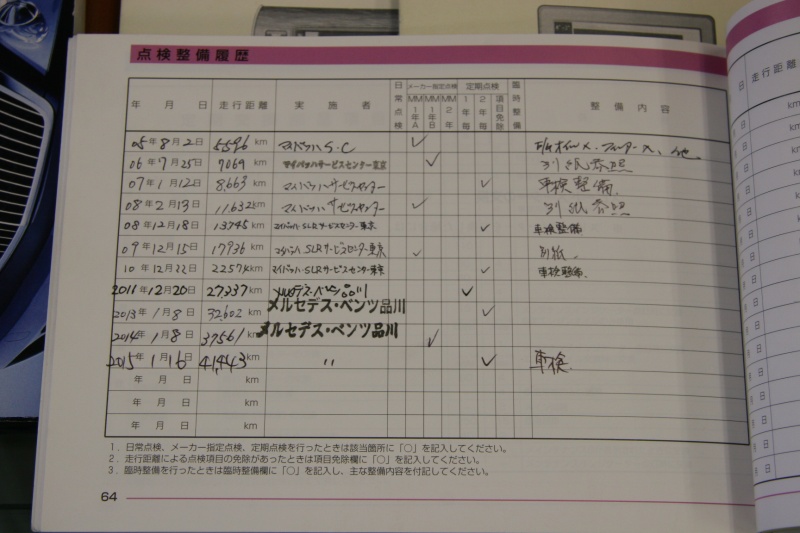 点検整備履歴
年 月 日 走行距離 実施者 日常点検 メーカー指定点検 MM1年A MM1年B MM2年 定期点検 1年毎 2年毎 項目免除 臨時整備 整備内容
05年8月2日 5596 km マイバッハS.C ✓
06年7月25日 7069 km マイバッハサービスセンター東京 ✓ 別紙参照
07年1月12日 8,663 km マイバッハサービスセンター ✓ 車検整備
08年2月13日 11,632 km マイバッハサービスセンター ✓ 別紙参照
08年12月18日 13745 km マイバッハ・SLRサービスセンター東京 ✓ 車検整備
09年12月15日 17936 km マイバッハSLRサービスセンター東京 ✓ 別紙.
10年12月22日 22574 km マイバッハSLRサービスセンター東京 ✓ 車検整備.
2011年12月20日 27,337 km メルセデス・ベンツ品川 ✓
2013年1月8日 32,602 km メルセデス・ベンツ品川 ✓
2014年1月8日 37561 km メルセデス・ベンツ品川 ✓
2015年1月16日 41,443 km 〃 ✓ 車検.
年 月 日 km
年 月 日 km
年 月 日 km
1. 日常点検、メーカー指定点検、定期点検を行ったときは該当箇所に「○」を記入してください。
2. 走行距離による点検項目の免除があったときは項目免除欄に「○」を記入してください。
3. 臨時整備を行ったときは臨時整備欄に「○」を記入し、主な整備内容を付記してください。
64
走行距離